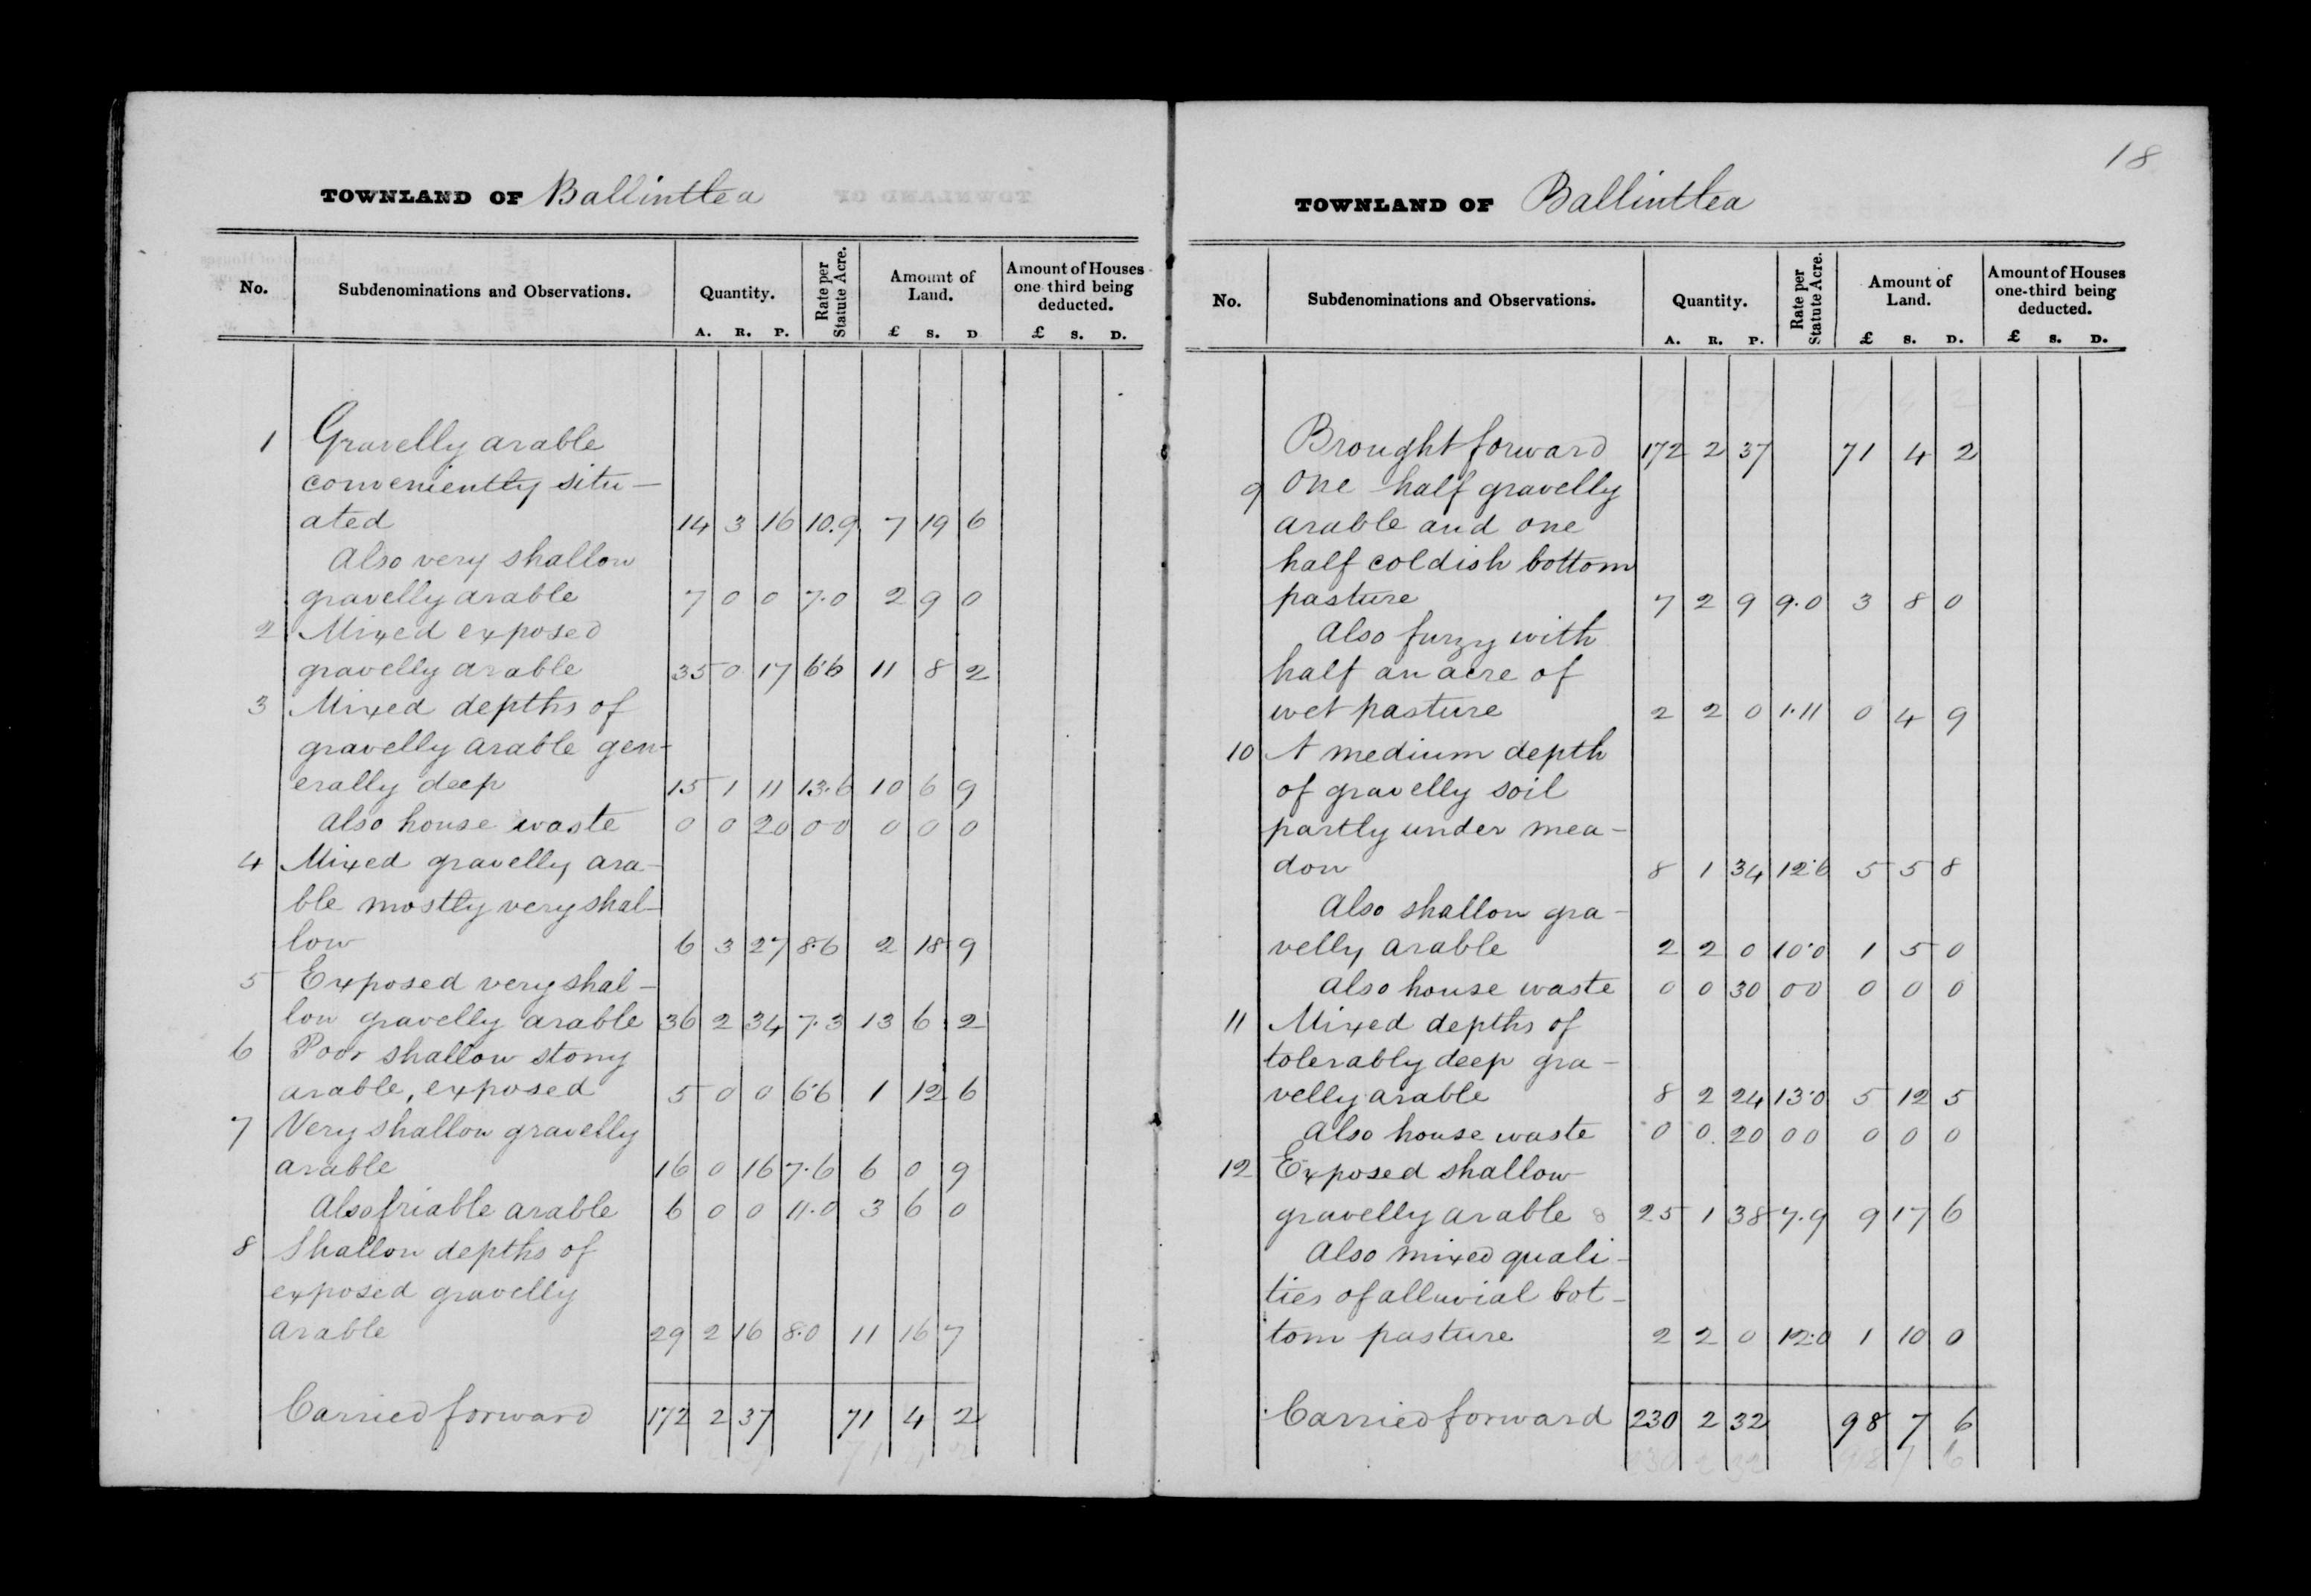 TOWNLAND OF Ballinttea
No. Subdenominations and Observations. Quantity. Rate per Statute Acre. Amount of Land. Amount of Houses one-third being deducted.
A. R. P. £ S. D. £ S. D.
1 Gravelly arable
conveniently situ-
ated 14 3 16 10.9 7 19 6
Also very shallow
gravelly arable 7 0 0 7.0 2 9 0
2 Mixed exposed
gravelly arable 35 0 17 6.6 11 8 2
3 Mixed depths of
gravelly arable gen-
erally deep 15 1 11 13.6 10 6 9
Also house waste 0 0 20 00 0 0 0
4 Mixed gravelly ara-
ble mostly very shal-
low 6 3 27 8.6 2 18 9
5 Exposed very shal-
low gravelly arable 36 2 34 7.3 13 6 2
6 Poor shallow stony
arable, exposed 5 0 0 6.6 1 12 6
7 Very shallow gravelly
arable 16 0 16 7.6 6 0 9
Also friable arable 6 0 0 11.0 3 6 0
8 Shallow depths of
exposed gravelly
arable 29 2 16 8.0 11 16 7
Carried forward 172 2 37 71 4 2
18
TOWNLAND OF Ballinttea
No. Subdenominations and Observations. Quantity. Rate per Statute Acre. Amount of Land. Amount of Houses one-third being deducted.
A. R. P. £ S. D. £ S. D.
Brought forward 172 2 37 71 4 2
9 One half gravelly
arable and one
half coldish bottom
pasture 7 2 9 9.0 3 8 0
Also furzy with
half an acre of
wet pasture 2 2 0 1.11 0 4 9
10 A medium depth
of gravelly soil
partly under mea-
dow 8 1 34 12.6 5 5 8
Also shallow gra-
velly arable 2 2 0 10.0 1 5 0
Also house waste 0 0 30 00 0 0 0
11 Mixed depths of
tolerably deep gra-
velly arable 8 2 24 13.0 5 12 5
Also house waste 0 0 20 00 0 0 0
12 Exposed shallow
gravelly arable 25 1 38 7.9 9 17 6
Also mixed quali-
ties of alluvial bot-
tom pasture 2 2 0 12.0 1 10 0
Carried forward 230 2 32 98 7 6